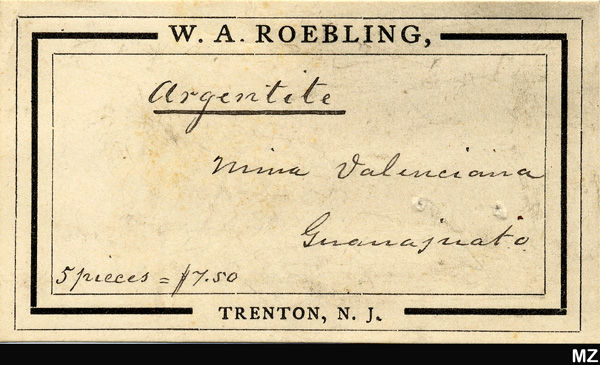 W. A. ROEBLING,
Argentite
Mina Valenciana
Guanajuato
5 pieces = $7.50
TRENTON, N. J.
MZ